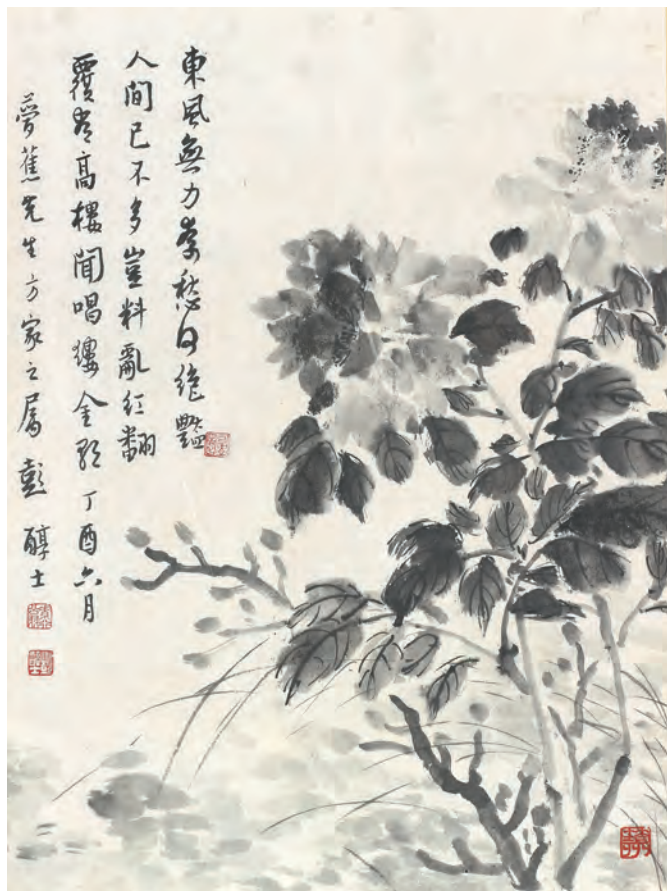 東風無力奈愁何絕豔
人間已不多豈料亂紅翻
覆高樓聞唱縷金歌 丁酉六月
夢蕉先生方家之屬 彭醇士